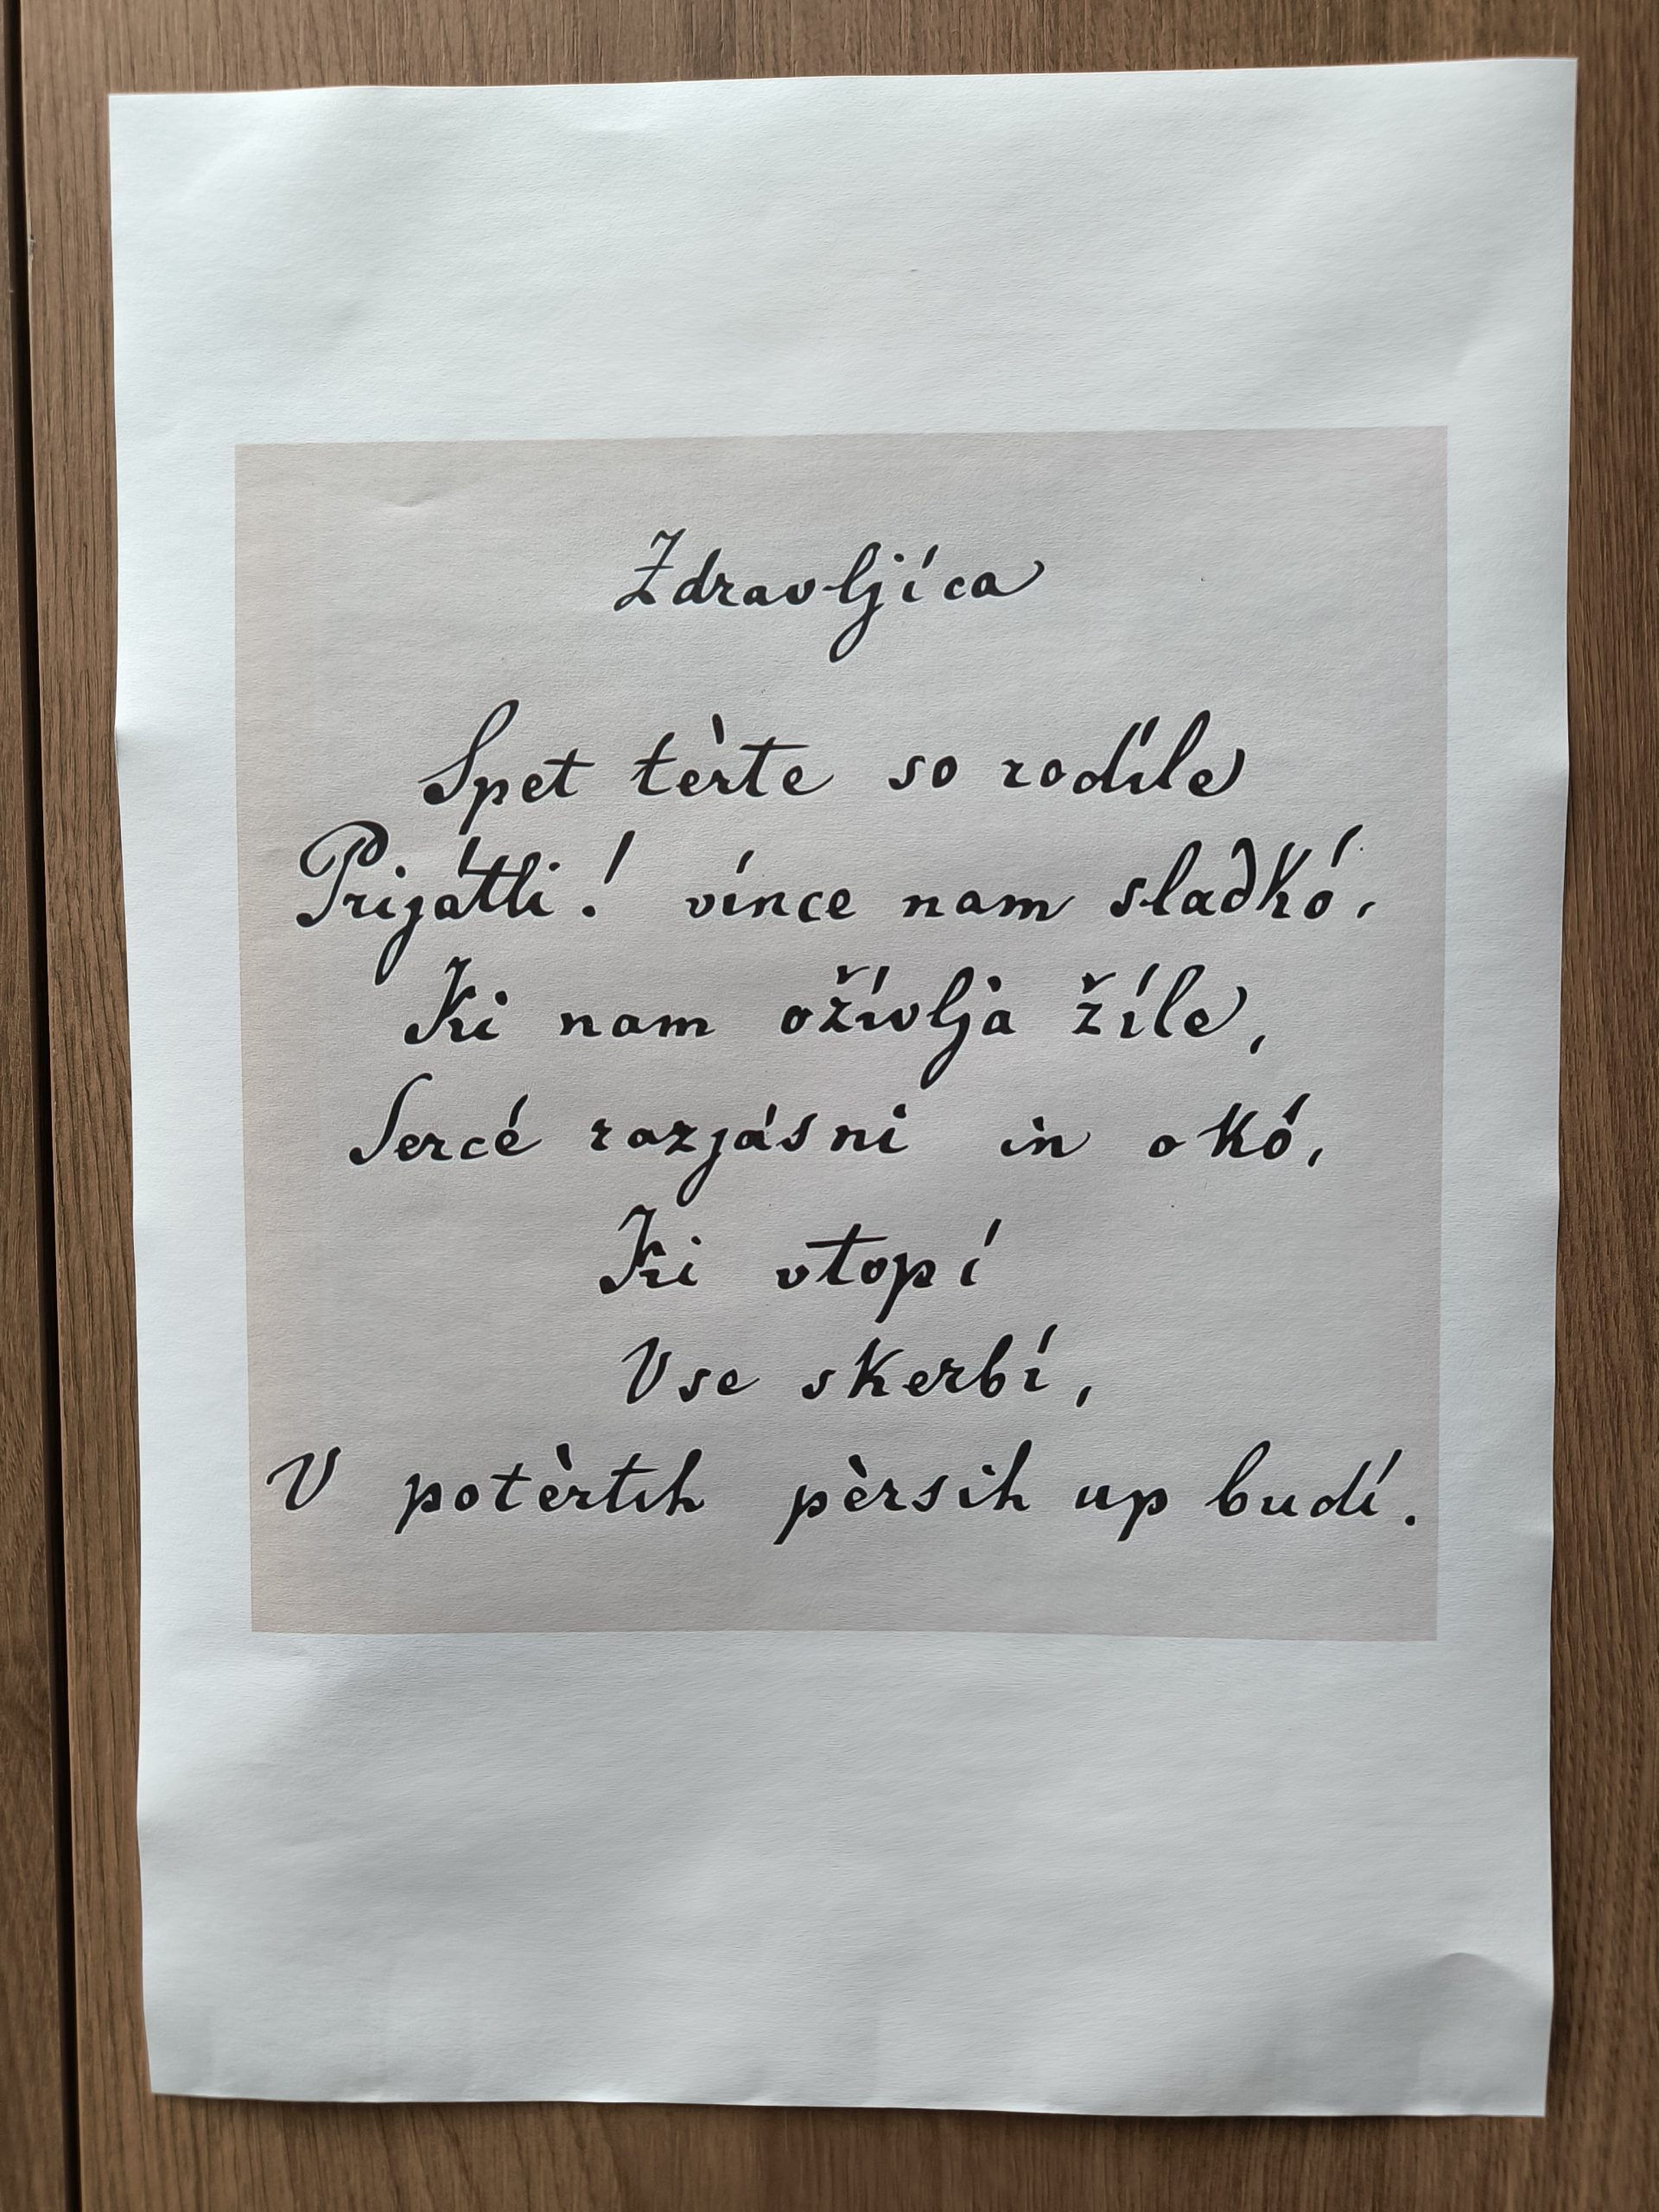 Zdravljíca
Spet tèrte so rodíle
Prijátli! vínce nam sladkó,
Ki nam ožívlja žíle,
Sercé razjásni in okó,
Ki vtopí
Vse skerbí,
V potèrtih pèrsih up budí.